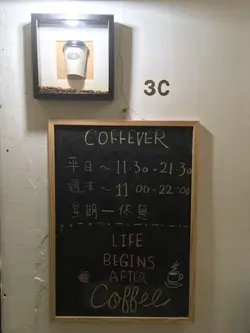 3C
COFFEVER
平日～11:30-21:30
週末～11:00-22:00
星期一休息
LIFE
BEGINS
AFTER
Coffee